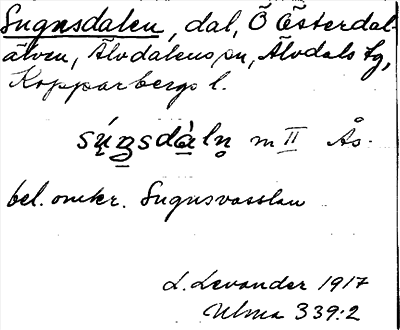 Sugnsdalen, dal, Ö Österdal-
älven, Älvdalens sn, Älvdals tg,
Kopparbergs l.
m II Ås.
bel. omkr. Sugnsvasslan
L. Levander 1917
Ulma 339:2